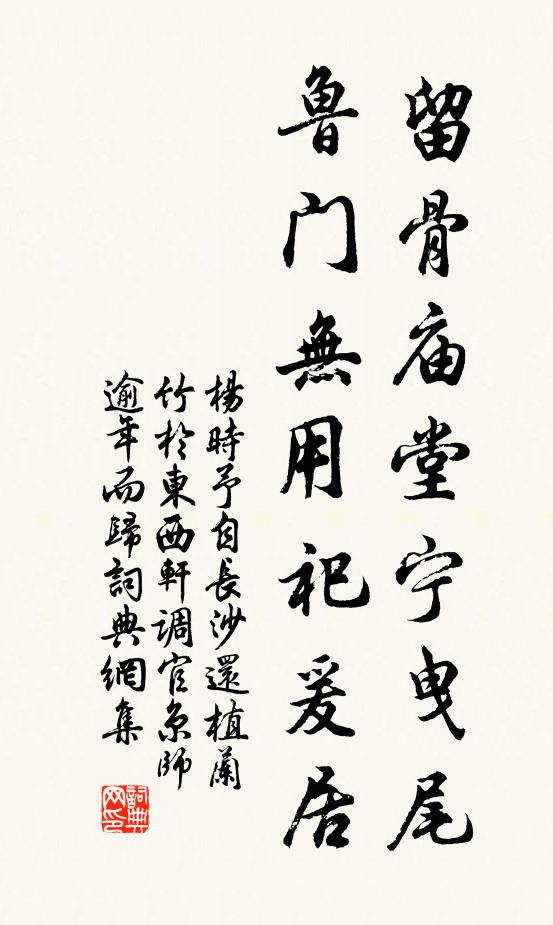 留骨庙堂宁曳尾
魯门無用祀爰居
楊時予自長沙還植蘭
竹於東西軒調官京師
逾年而歸詞典網集
詞典网印